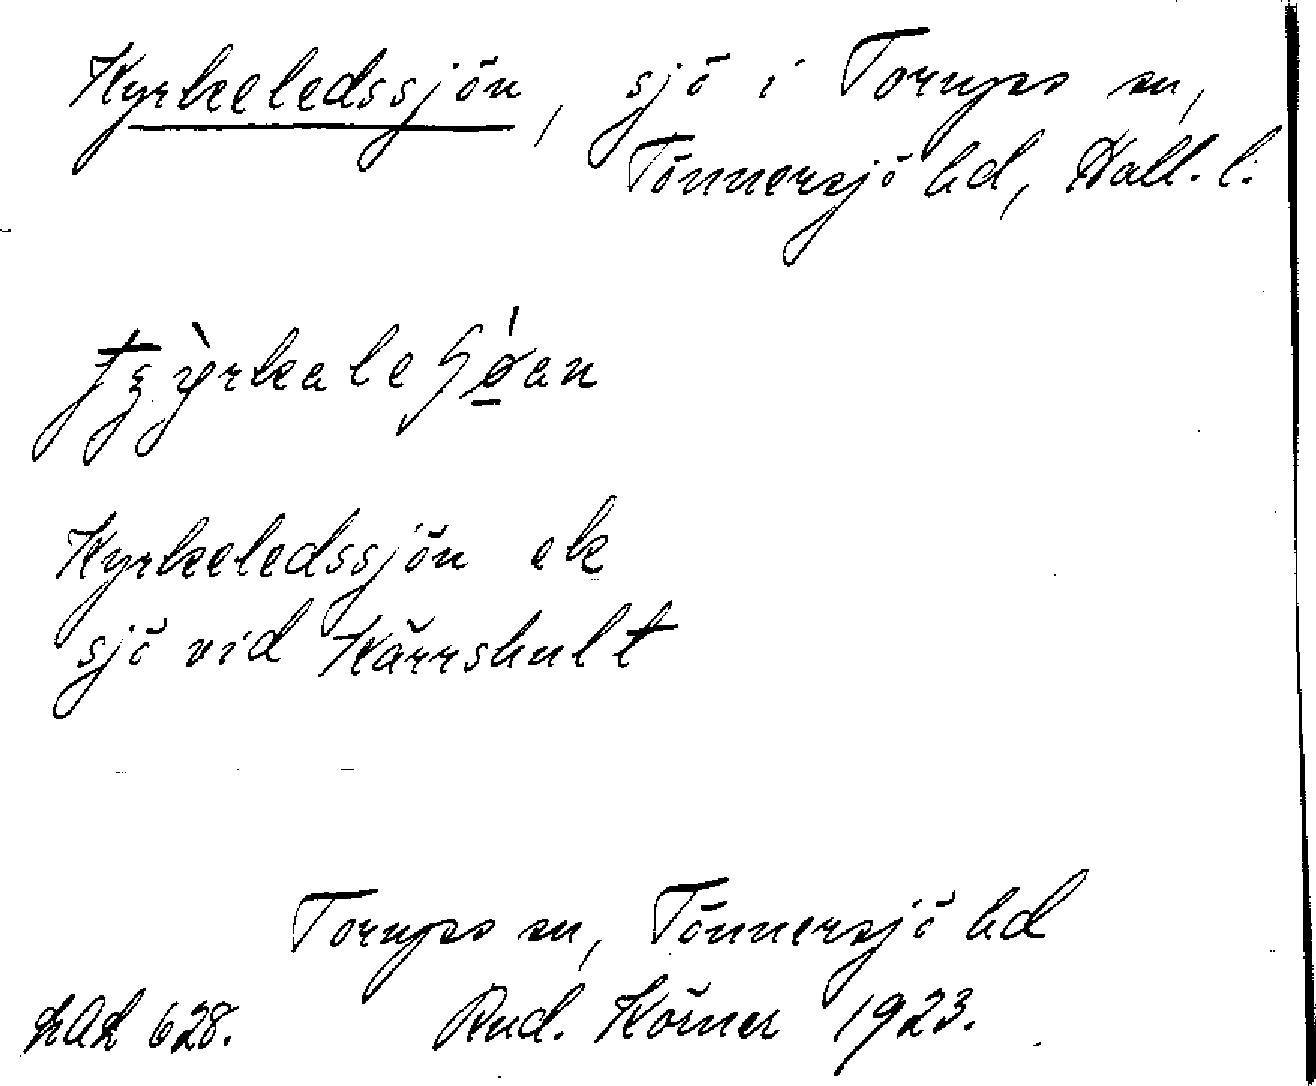 Kyrkeledssjön, sjö i Torups sn,
Tönnersjö hd, Hall. l.
Kyrkeledssjön ek
sjö vid Kärrshult
Torups sn, Tönnersjö hd
LAL 628. Rud. Körner 1923.